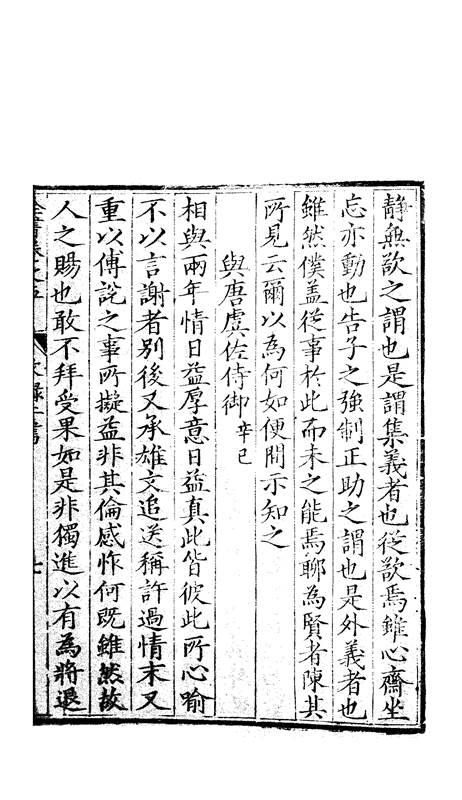 静無欲之謂也是謂集義者也從欲焉雖心齋坐
忘亦動也告子之強制正助之謂也是外義者也
雖然僕蓋從事於此而未之能焉聊為賢者陳其
所見云爾以為何如便間示知之
與唐虞佐侍御辛巳
相與兩年情日益厚意日益真此皆彼此所心喻
不以言謝者別後又承雄文追送稱許過情末又
重以傅說之事所擬益非其倫感怍何既雖然故
人之賜也敢不拜受果如是非獨進以有為將退